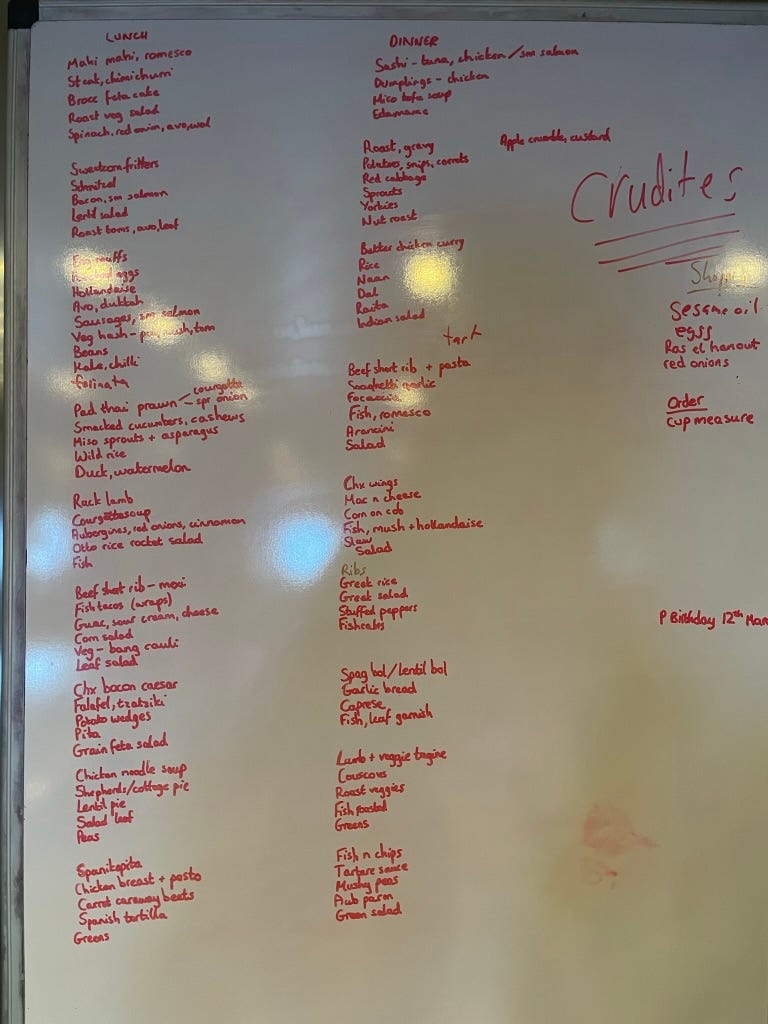 LUNCH
Mahi mahi, romesco
Steak, chimichurri
Brocc feta cake
Roast veg salad
Spinach, red onion, avo, wal
Sweetcorn fritters
Schnitzel
Bacon, sm salmon
Lentil salad
Roast toms, avo, leaf
Eng muffs
eggs
Hollandaise
Avo, dukkah
Sausages, sm salmon
Veg hash - mush, tom
Beans
Kale, chilli
farinata
Pad thai prawn - courgette
- spr onion
Smacked cucumbers, cashews
Miso sprouts + asparagus
Wild rice
Duck, watermelon
Rack lamb
Courgette soup
Aubergines, red onions, cinnamon
Otto rice rocket salad
Fish
Beef short rib - mexi
Fish tacos (wraps)
Guac, sour cream, cheese
Corn salad
Veg - bang cauli
Leaf salad
Chx bacon caesar
Falafel, tzatziki
Potato wedges
Pita
Grain feta salad
Chicken noodle soup
Shepherds/cottage pie
Lentil pie
Salad leaf
Peas
Spanikopita
Chicken breast + pesto
Carrot caraway beets
Spanish tortilla
Greens
DINNER
Sushi - tuna, chicken / sm salmon
Dumplings - chicken
Miso tofu soup
Edamame
Roast, gravy
Potatoes, snips, carrots
Red cabbage
Sprouts
Yorkies
Nut roast
Apple crumble, custard
Butter chicken curry
Rice
Naan
Dal
Raita
Indian salad
tart
Beef short rib + pasta
Spaghetti garlic
Focaccia
Fish, romesco
Arancini
Salad
Chx wings
Mac n cheese
Corn on cob
Fish, mush + hollandaise
Slaw
Salad
Ribs
Greek rice
Greek salad
Stuffed peppers
Fishcakes
Spag bol / lentil bol
Garlic bread
Caprese
Fish, leaf garnish
Lamb + veggie tagine
Couscous
Roast veggies
Fish roasted
Greens
Fish n chips
Tartare sauce
Mushy peas
Aub parm
Green salad
Crudites
Sesame oil
eggs
Ras el hanout
red onions
Order
cup measure
P Birthday 12th Mar